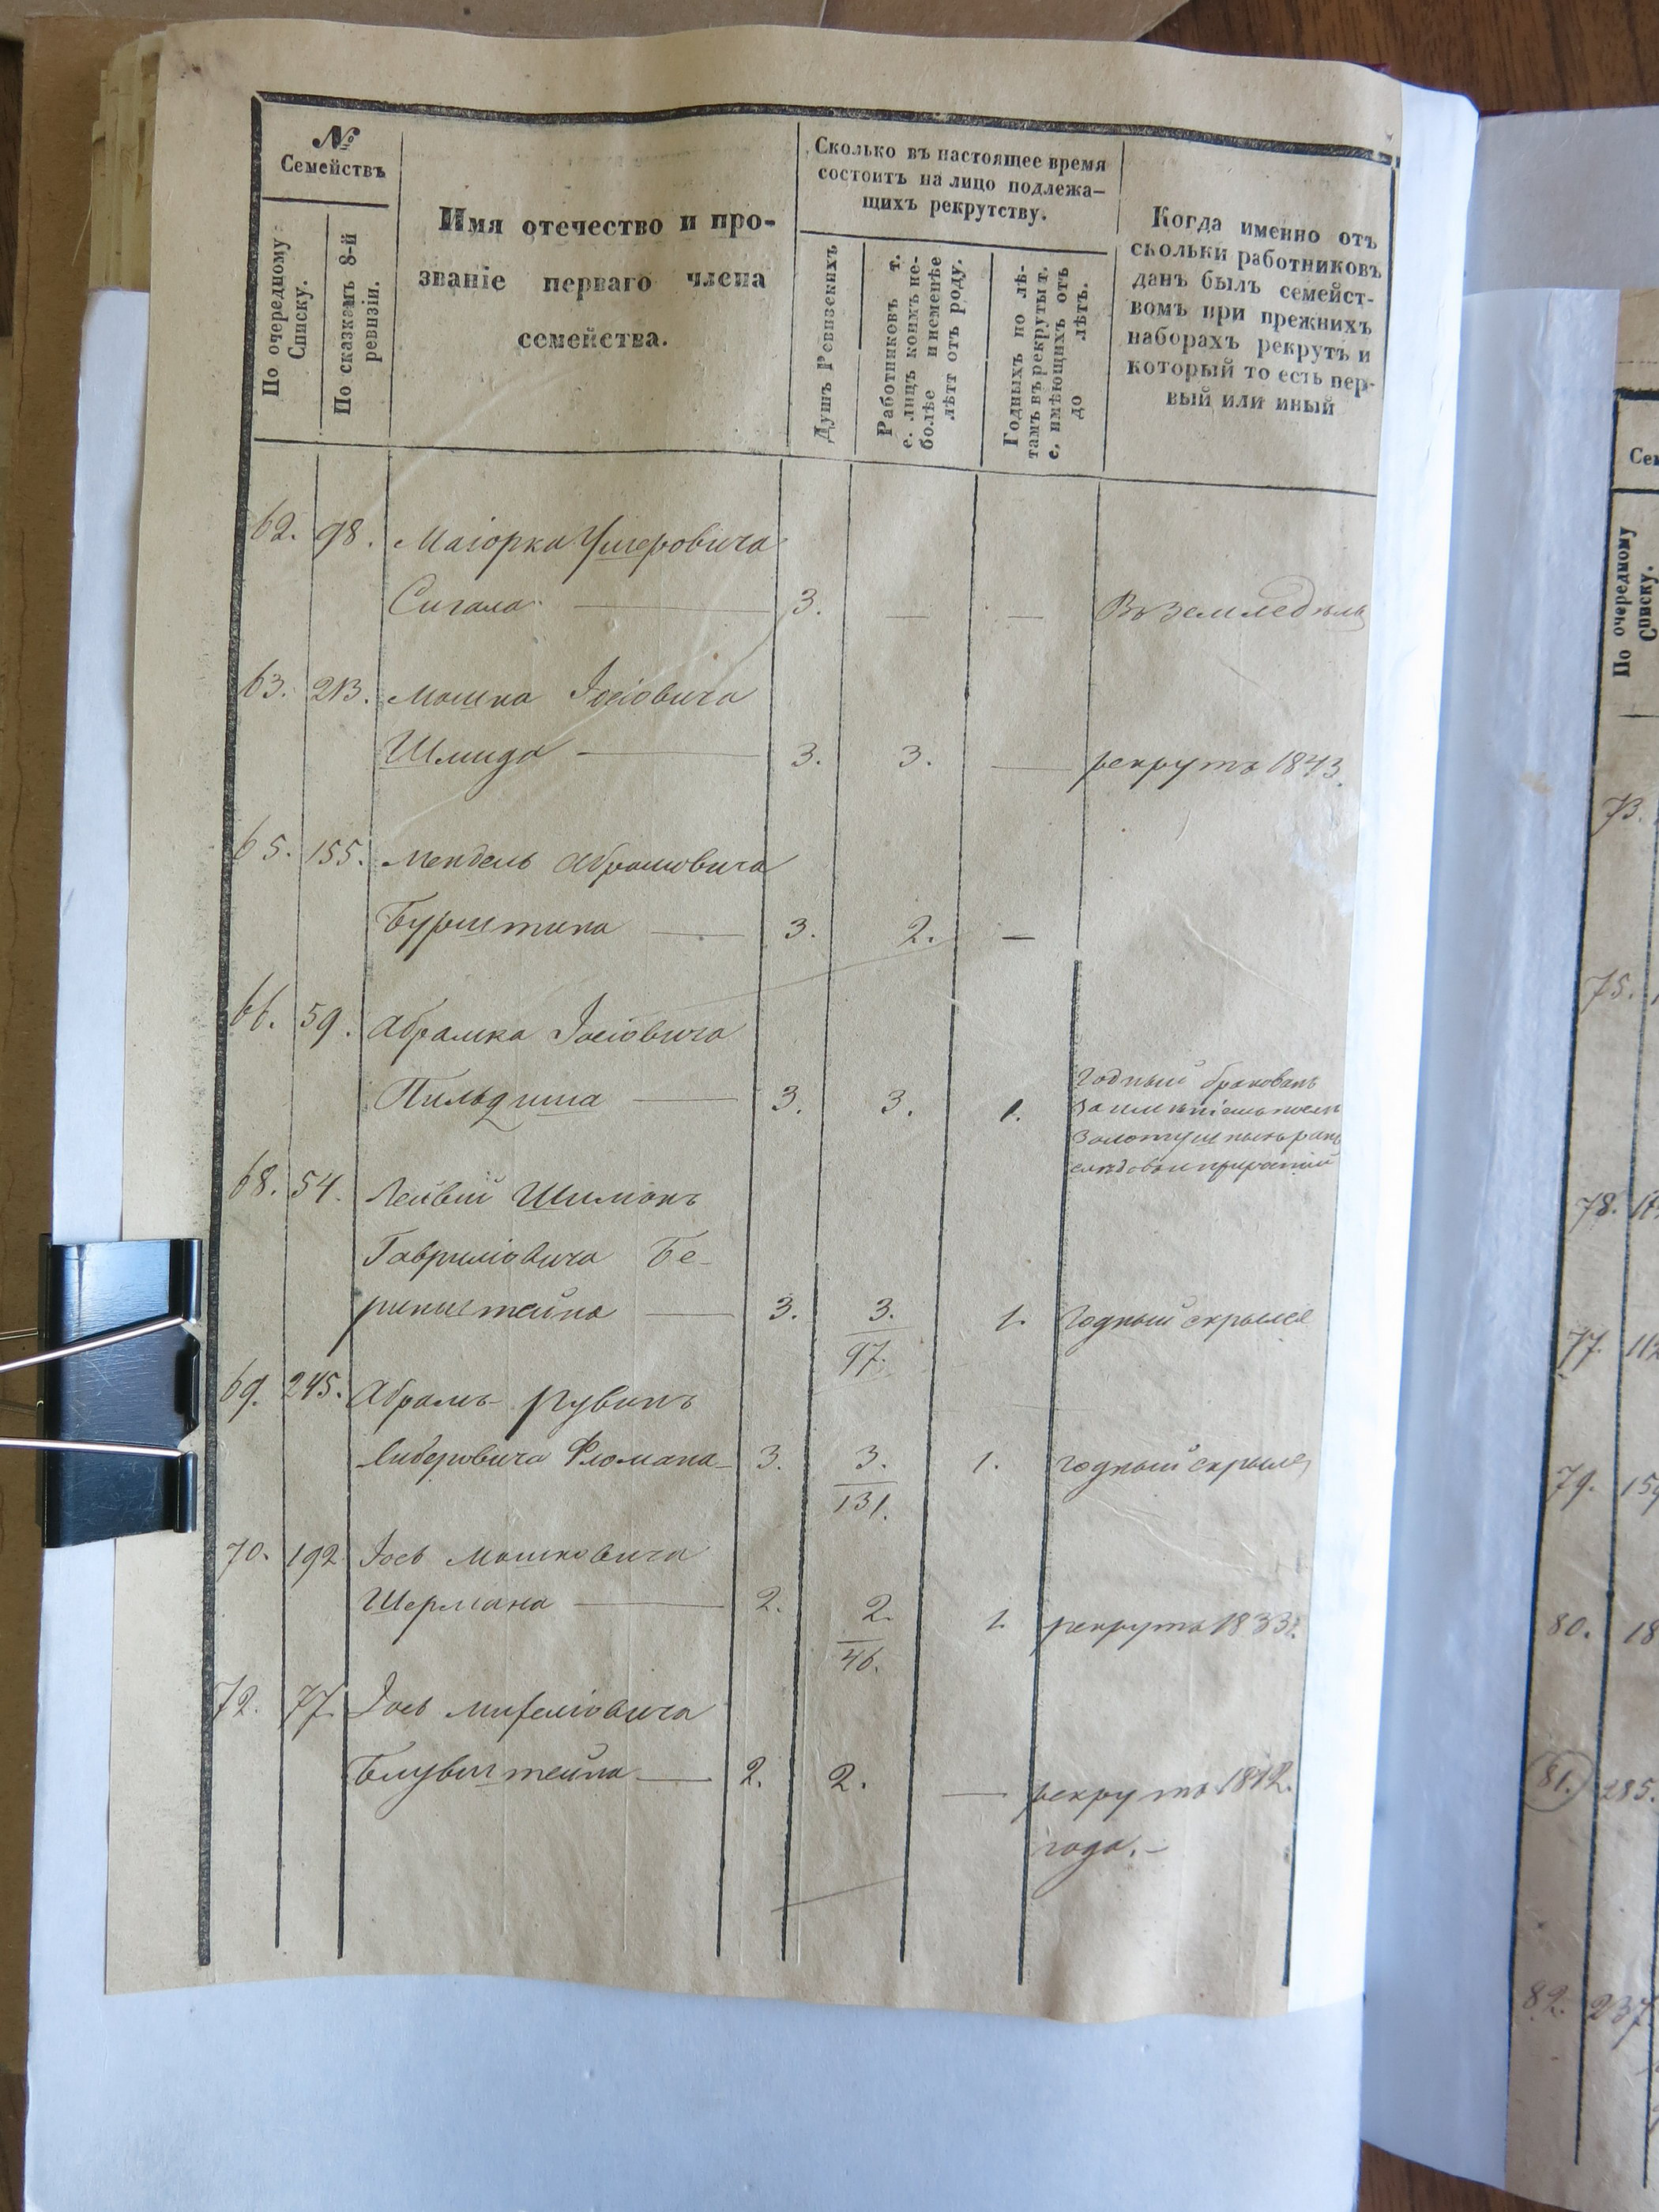 №
Семействъ
По очередному
Списку.
По сказкамъ 8-й
ревизіи.
Имя отечество и про-
званіе перваго члена
семейства.
Сколько въ настоящее время
состоитъ на лицо подлежа-
щихъ рекрутству.
Душъ Ревизскихъ
Работниковъ т.
е. лицъ коихъ не-
болѣе и неменѣе
лѣтт отъ роду.
Годныхъ по лѣ-
тамъ въ рекруты т.
е. имѣющихъ отъ
до лѣтъ.
Когда именно отъ
скольки работниковъ
данъ былъ семейст-
вомъ при прежнихъ
наборахъ рекрутъ и
который то есть пер-
вый или иный
62. 98. Маіорка Ушеровича
Сигала 3. — — Въ земледѣльц
63. 213. Мошка Іосіовича
Шмида 3. 3. — рекрутъ 1843.
65. 155. Мендель Абрамовича
Бурштина 3. 2. —
66. 59. Абрамка Іосіовича
Пильдиша 3. 3. 1. Годный бракованъ
68. 54. Лейвій Шимонъ
Гавриліовича Бе-
ринштейна 3. 3. 1. Годный скрылся
97.
69. 245. Абрамъ Рувинъ
Фломана 3. 3. 1. годный скрылся
131.
70. 192 Іось Мошковича
Шермана 2. 2. 1. рекрутъ 1833г.
46.
72. 77. Іось
Блувштейна 2. 2. — рекрутъ 1842.
года. —
Сем
По очередному
Списку.
73.
75.
78.
77. 112
79. 159
80. 18
81. 285.
82. 237.